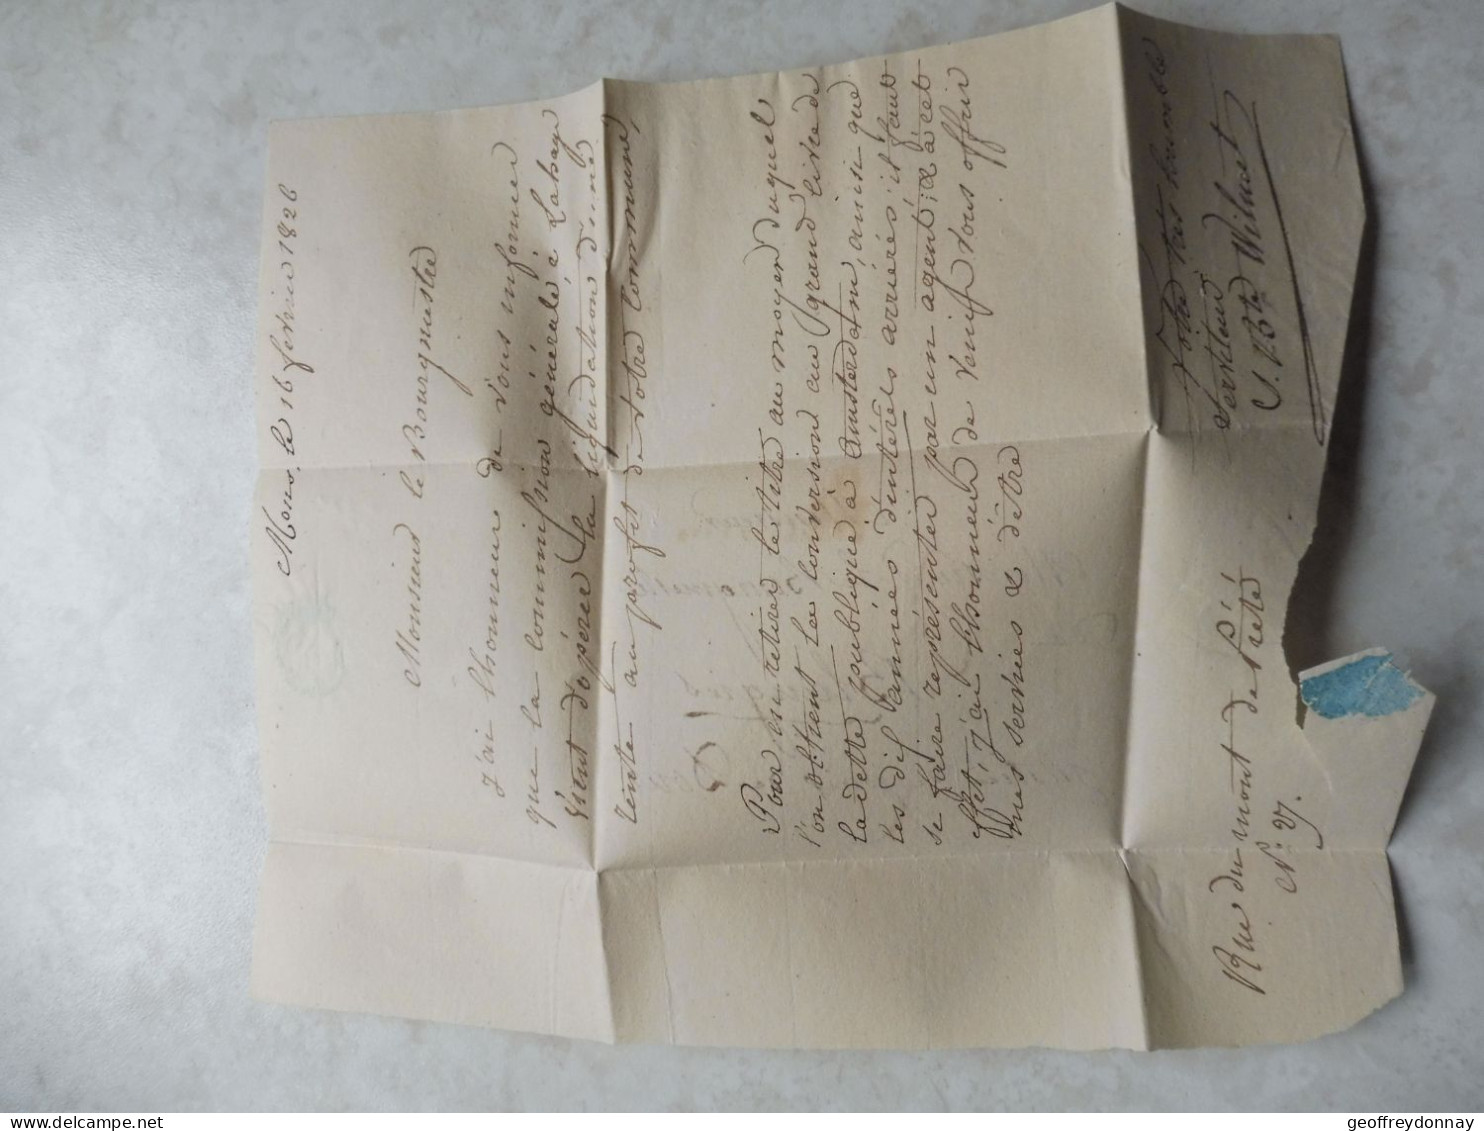 Mons, le 16 février 1826
Monsieur le Bourgmestre
J'ai l'honneur de vous informer
que la Commission générale à Lahaye
vient d'opérer la liquidation d'une
rente au profit de votre Commune,
Pour en retirer le titre au moyen duquel
l'on obtient la conversion au grand livre de
la dette publique à Amsterdam, ainsi que
les dif années d'intérêts arriérés il faut
se faire représenter par un agent; & à cet
effet, j'ai l'honneur de venir vous offrir
mes services & d'être
Votre très humble
Serviteur
J. Bte Wilmet
Rue du mont de Piété
N. 27.
geoffreydonnay